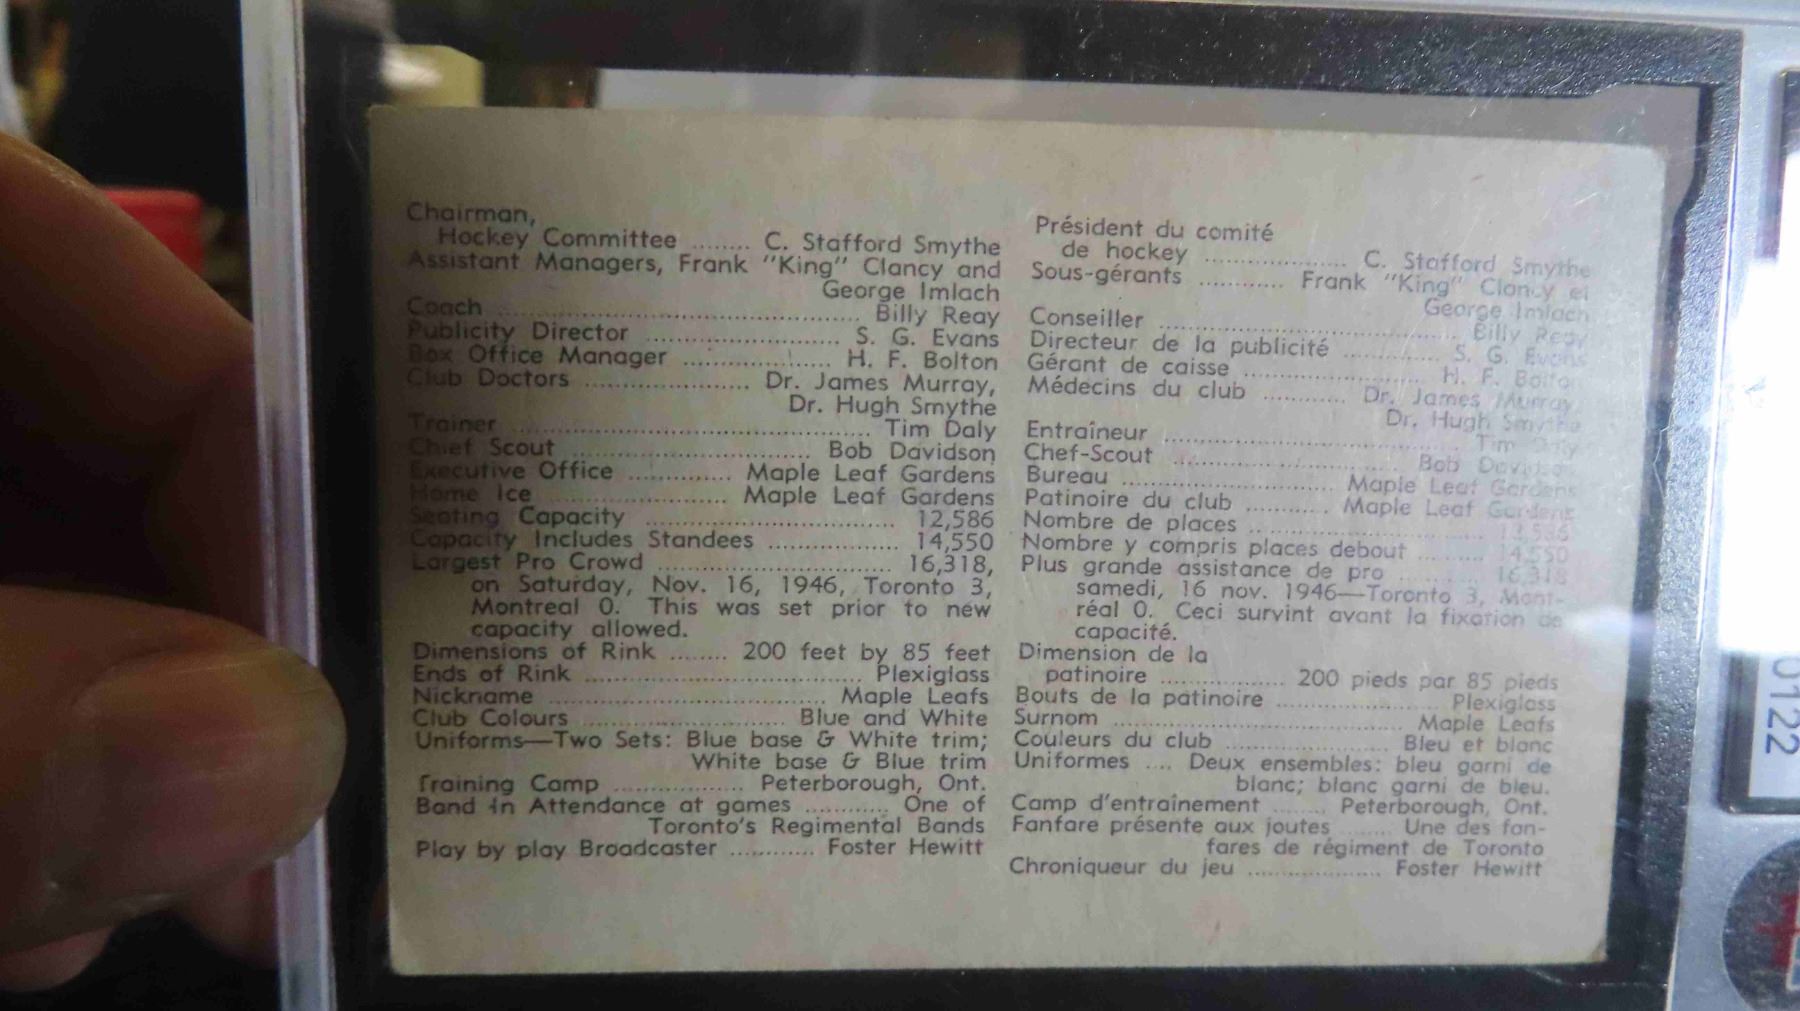 Chairman,
Hockey Committee ........ C. Stafford Smythe
Assistant Managers, Frank "King" Clancy and
George Imlach
Coach ................................................ Billy Reay
Publicity Director ............................ S. G. Evans
Box Office Manager ..................... H. F. Bolton
Club Doctors ........................ Dr. James Murray,
Dr. Hugh Smythe
Trainer .................................................... Tim Daly
Chief Scout .................................. Bob Davidson
Executive Office .............. Maple Leaf Gardens
Home Ice ......................... Maple Leaf Gardens
Seating Capacity .................................... 12,586
Capacity Includes Standees ................... 14,550
Largest Pro Crowd ................................ 16,318,
on Saturday, Nov. 16, 1946, Toronto 3,
Montreal 0. This was set prior to new
capacity allowed.
Dimensions of Rink ........ 200 feet by 85 feet
Ends of Rink ....................................... Plexiglass
Nickname ....................................... Maple Leafs
Club Colours ............................. Blue and White
Uniforms—Two Sets: Blue base & White trim;
White base & Blue trim
Training Camp ................... Peterborough, Ont.
Band in Attendance at games ............ One of
Toronto's Regimental Bands
Play by play Broadcaster ............ Foster Hewitt
Président du comité
de hockey .................... C. Stafford Smythe
Sous-gérants ............ Frank "King" Clancy et
George Imlach
Conseiller .......................................... Billy Reay
Directeur de la publicité .............. S. G. Evans
Gérant de caisse .......................... H. F. Bolton
Médecins du club ............ Dr. James Murray
Dr. Hugh Smythe
Entraîneur ............................................ Tim Daly
Chef-Scout ................................ Bob Davidson
Bureau .............................. Maple Leaf Gardens
Patinoire du club ............ Maple Leaf Gardens
Nombre de places ..................................
Nombre y compris places debout ......... 14,550
Plus grande assistance de pro ........... 16,318
samedi, 16 nov. 1946—Toronto 3, Mont-
réal 0. Ceci survint avant la fixation de
capacité.
Dimension de la
patinoire ................. 200 pieds par 85 pieds
Bouts de la patinoire ....................... Plexiglass
Surnom .......................................... Maple Leafs
Couleurs du club ........................ Bleu et blanc
Uniformes .... Deux ensembles: bleu garni de
blanc; blanc garni de bleu.
Camp d'entraînement ........ Peterborough, Ont.
Fanfare présente aux joutes ........ Une des fan-
fares de régiment de Toronto
Chroniqueur du jeu ................... Foster Hewitt
0122